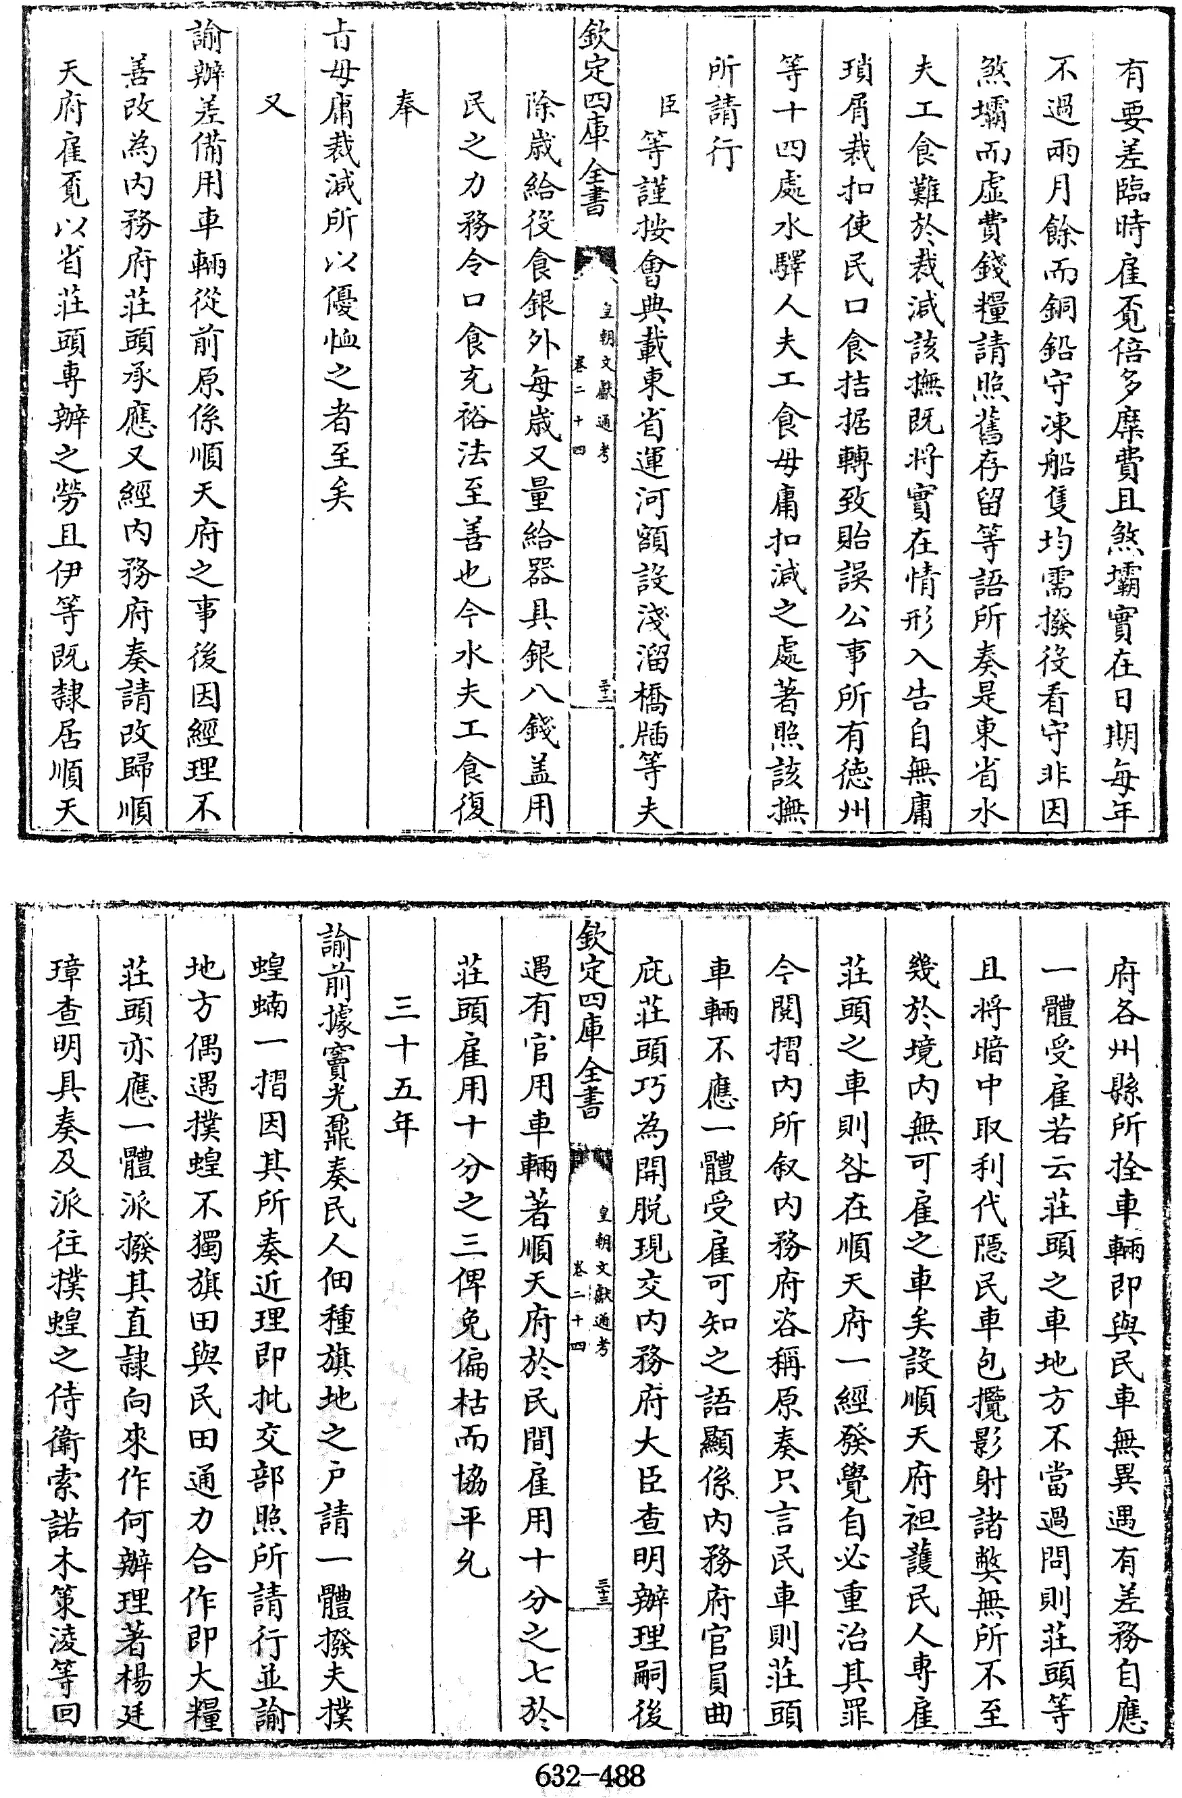 有要差臨時雇覔倍多糜費且煞壩實在日期每年
不過兩月餘而銅鉛守凍船隻均需撥役看守非因
煞壩而虛費錢糧請照舊存留等語所奏是東省水
夫工食難於裁減該撫既將實在情形入告自無庸
瑣屑裁扣使民口食拮据轉致貽誤公事所有德州
等十四處水驛人夫工食毋庸扣減之處著照該撫
所請行
臣等謹按會典載東省運河額設淺溜橋牐等夫
欽定四庫全書
皇朝文獻通考
卷二十四
三十二
除歲給役食銀外每歲又量給器具銀八錢盖用
民之力務令口食充裕法至善也今水夫工食復
奉
旨毋庸裁減所以優恤之者至矣
又
諭辦差備用車輛從前原係順天府之事後因經理不
善改為內務府莊頭承應又經內務府奏請改歸順
天府雇覔以省莊頭專辦之勞且伊等既隸居順天
府各州縣所拴車輛即與民車無異遇有差務自應
一體受雇若云莊頭之車地方不當過問則莊頭等
且將暗中取利代隱民車包攬影射諸獘無所不至
幾於境內無可雇之車矣設順天府袒護民人專雇
莊頭之車則咎在順天府一經發覺自必重治其罪
今閱摺內所叙內務府咨稱原奏只言民車則莊頭
車輛不應一體受雇可知之語顯係內務府官員曲
庇莊頭巧為開脱現交內務府大臣查明辦理嗣後
欽定四庫全書
皇朝文獻通考
卷二十四
三十三
遇有官用車輛著順天府於民間雇用十分之七於
莊頭雇用十分之三俾免偏枯而協平允
三十五年
諭前據竇光鼐奏民人佃種旗地之户請一體撥夫撲
蝗蝻一摺因其所奏近理即批交部照所請行並諭
地方偶遇撲蝗不獨旗田與民田通力合作即大糧
莊頭亦應一體派撥其直隸向來作何辦理著楊廷
璋查明具奏及派往撲蝗之侍衛索諾木策凌等回
632-488